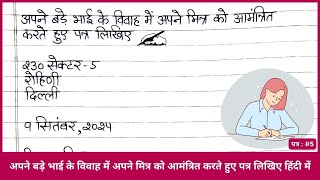 अपने बड़े भाई के विवाह में अपने मित्र को आमंत्रित
करते हुए पत्र लिखिए
२३० सेक्टर-5
रोहिणी
दिल्ली
१ सितंबर, २०२५
पत्र : #5
अपने बड़े भाई के विवाह में अपने मित्र को आमंत्रित करते हुए पत्र लिखिए हिंदी में